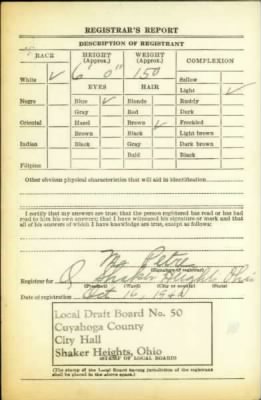 REGISTRAR'S REPORT
DESCRIPTION OF REGISTRANT
RACE HEIGHT (Approx.) WEIGHT (Approx.) COMPLEXION
6' 0" 150
White ✓ Sallow
EYES HAIR Light ✓
Negro Blue ✓ Blonde Ruddy
Gray Red Dark
Oriental Hazel Brown ✓ Freckled
Brown Black Light brown
Indian Black Gray Dark brown
Bald Black
Filipino
Other obvious physical characteristics that will aid in identification
I certify that my answers are true; that the person registered has read or has had
read to him his own answers; that I have witnessed his signature or mark and that
all of his answers of which I have knowledge are true, except as follows:
Petre
(Signature of registrar)
Registrar for Q Shaker Heights Ohio
(Precinct) (Ward) (City or county) (State)
Date of registration Oct 16, 1940
Local Draft Board No. 50
Cuyahoga County
City Hall
Shaker Heights, Ohio
(STAMP OF LOCAL BOARD)
(The stamp of the Local Board having jurisdiction of the registrant
shall be placed in the above space.)